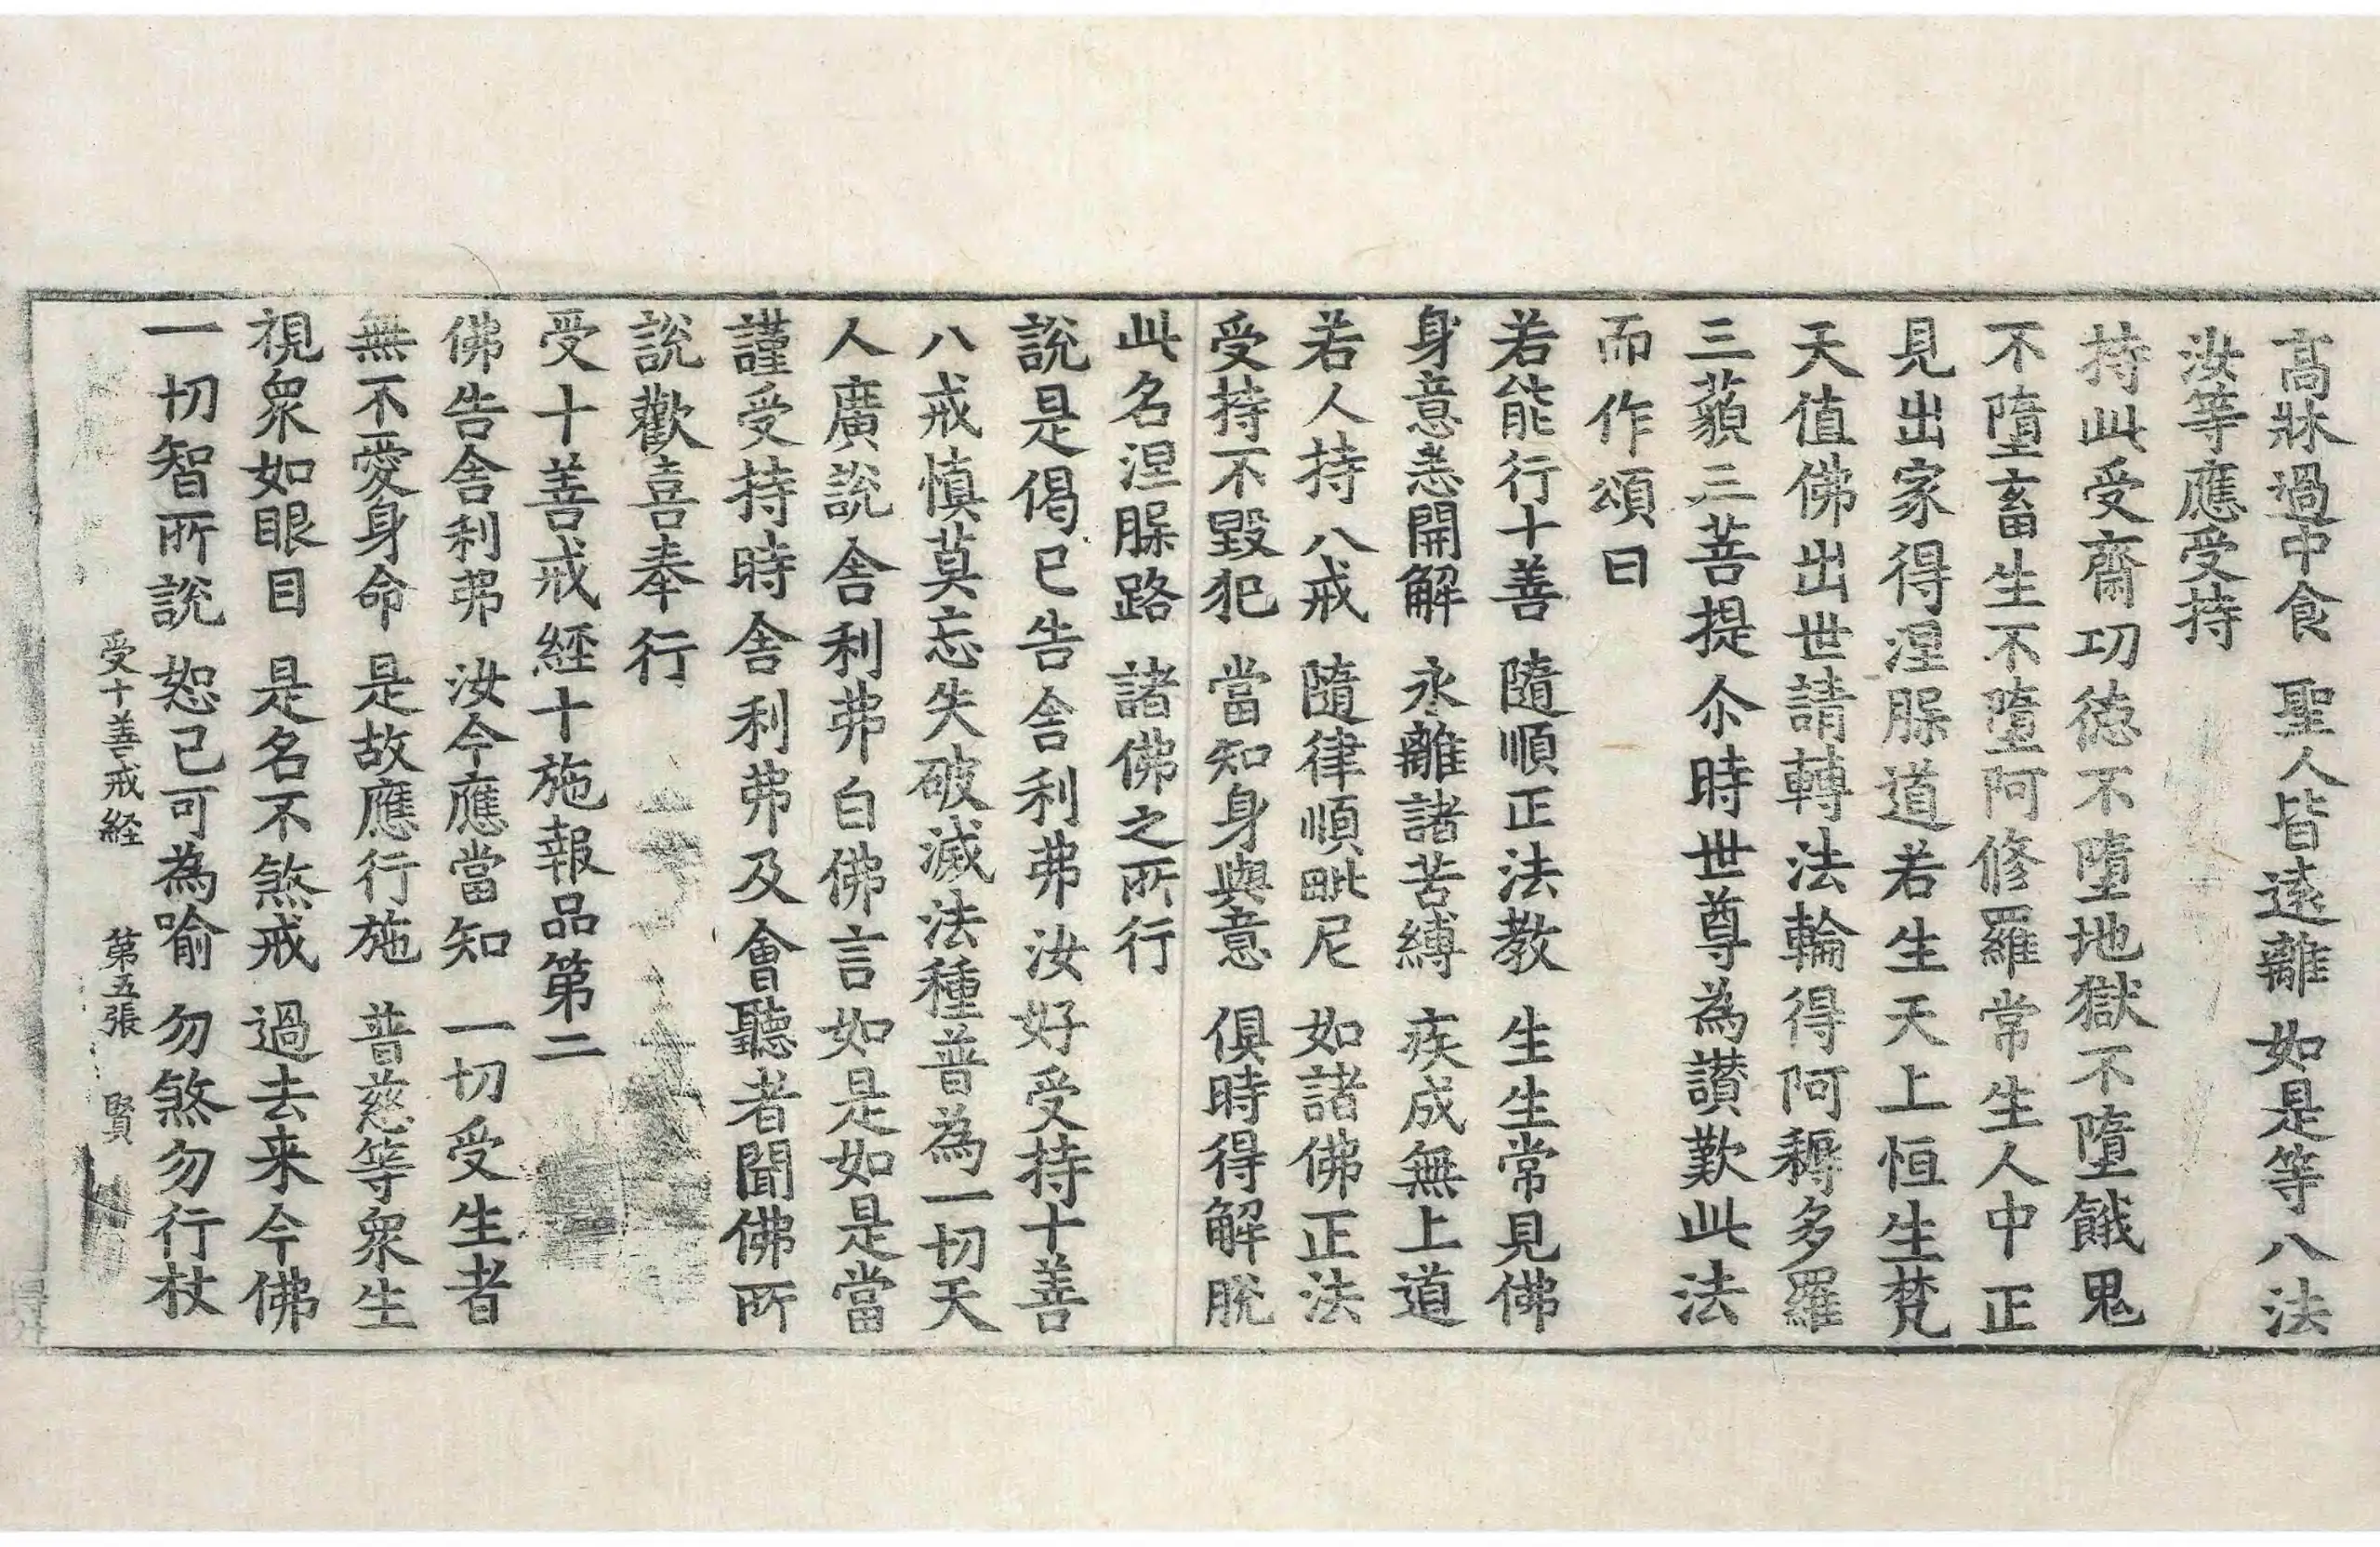 高牀過中食　聖人皆遠離　如是等八法
汝等應受持
持此受齋功徳不墮地獄不墮餓鬼
不墮畜生不墮阿修羅常生人中正
見出家得涅脲道若生天上恒生梵
天值佛出世請轉法輪得阿耨多羅
三藐三菩提尒時世尊為讃歎此法
而作頌曰
若能行十善　隨順正法教　生生常見佛
身意恙開解　永離諸苦縛　疾成無上道
若人持八戒　隨律順毗尼　如諸佛正法
受持不毀犯　當知身與意　俱時得解脫
此名涅脲路　諸佛之所行
說是偈已告舍利弗汝好受持十善
八戒慎莫忘失破滅法種普為一切天
人廣說舍利弗白佛言如是如是當
謹受持時舍利弗及會聽者聞佛所
說歡喜奉行
受十善戒經十施報品第二
佛告舍利弗　汝今應當知　一切受生者
無不愛身命　是故應行施　普慈等衆生
視衆如眼目　是名不煞戒　過去来今佛
一切智所說　恕己可為喻　勿煞勿行杖
受十善戒経　第五張　賢